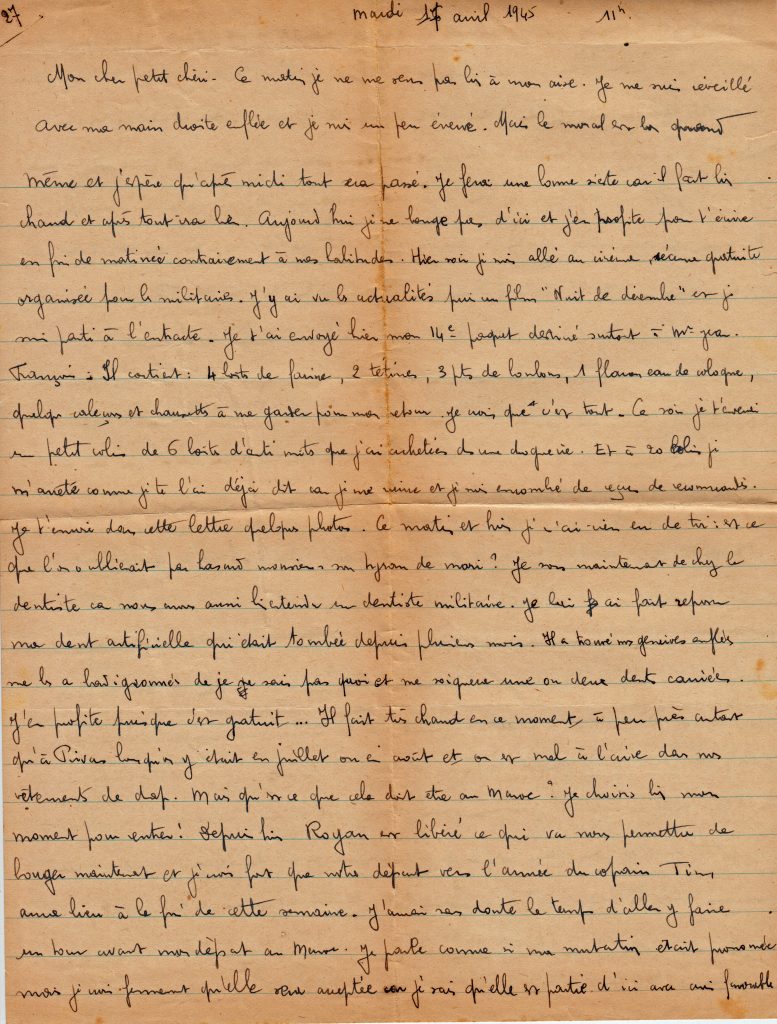 27
mardi 17 avril 1945 11h.
Mon cher petit chéri - Ce matin je ne me sens pas bien à mon aise. Je me suis réveillé
avec ma main droite enflée et je suis un peu énervé. Mais le moral est bon quand
même et j'espère qu'après midi tout sera passé. Je ferai une bonne sieste car il fait bien
chaud et après tout ira bien. Aujourd'hui je ne bouge pas d'ici et j'en profite pour t'écrire
en fin de matinée contrairement à mes habitudes. Hier soir je suis allé au cinéma, séance gratuite
organisée pour les militaires. J'y ai vu les actualités puis un film "Nuit de décembre" et je
suis parti à l'entracte. Je t'ai envoyé hier mon 14e paquet destiné surtout à Mr Jean.
François : Il contient : 4 boîtes de farine, 2 tétines, 3 pts de bonbons, 1 flacon eau de cologne,
quelques caleçons et chaussettes à me garder pour mon retour. Je crois que c'est tout. Ce soir je t'enverrai
un petit colis de 6 boîtes d'anti mites que j'ai achetées dans une droguerie. Et à 20 colis je
m'arrête comme je te l'ai déjà dit car je me ruine et je suis encombré de reçus de recommandés.
Je t'envoie dans cette lettre quelques photos. Ce matin et hier je n'ai rien eu de toi : est ce
que l'on oublierait par hasard monsieur son tyran de mari ? Je sors maintenant de chez le
dentiste car nous avons aussi bien entendu un dentiste militaire. Je lui ai fait reposer
ma dent artificielle qui était tombée depuis plusieurs mois. Il a trouvé mes gencives enflées
me les a badigeonnées de je ne sais pas quoi et me soignera une ou deux dents cariées.
J'en profite puisque c'est gratuit ... Il fait très chaud en ce moment à peu près autant
qu'à Privas lorsqu'on y était en juillet ou en août et on est mal à l'aise dans nos
vêtements de drap. Mais qu'est ce que cela doit être au Maroc ? Je choisis bien mon
moment pour rentrer ! Depuis hier Royan est libéré ce qui va nous permettre de
bouger maintenant et je crois fort que notre départ vers l'armée du copain
aura lieu à la fin de cette semaine. J'aurai sans doute le temps d'aller y faire
un tour avant mon départ au Maroc. Je parle comme si ma mutation était prononcée
mais je crois fermement qu'elle sera acceptée car je sais qu'elle est partie d'ici avec avis favorable